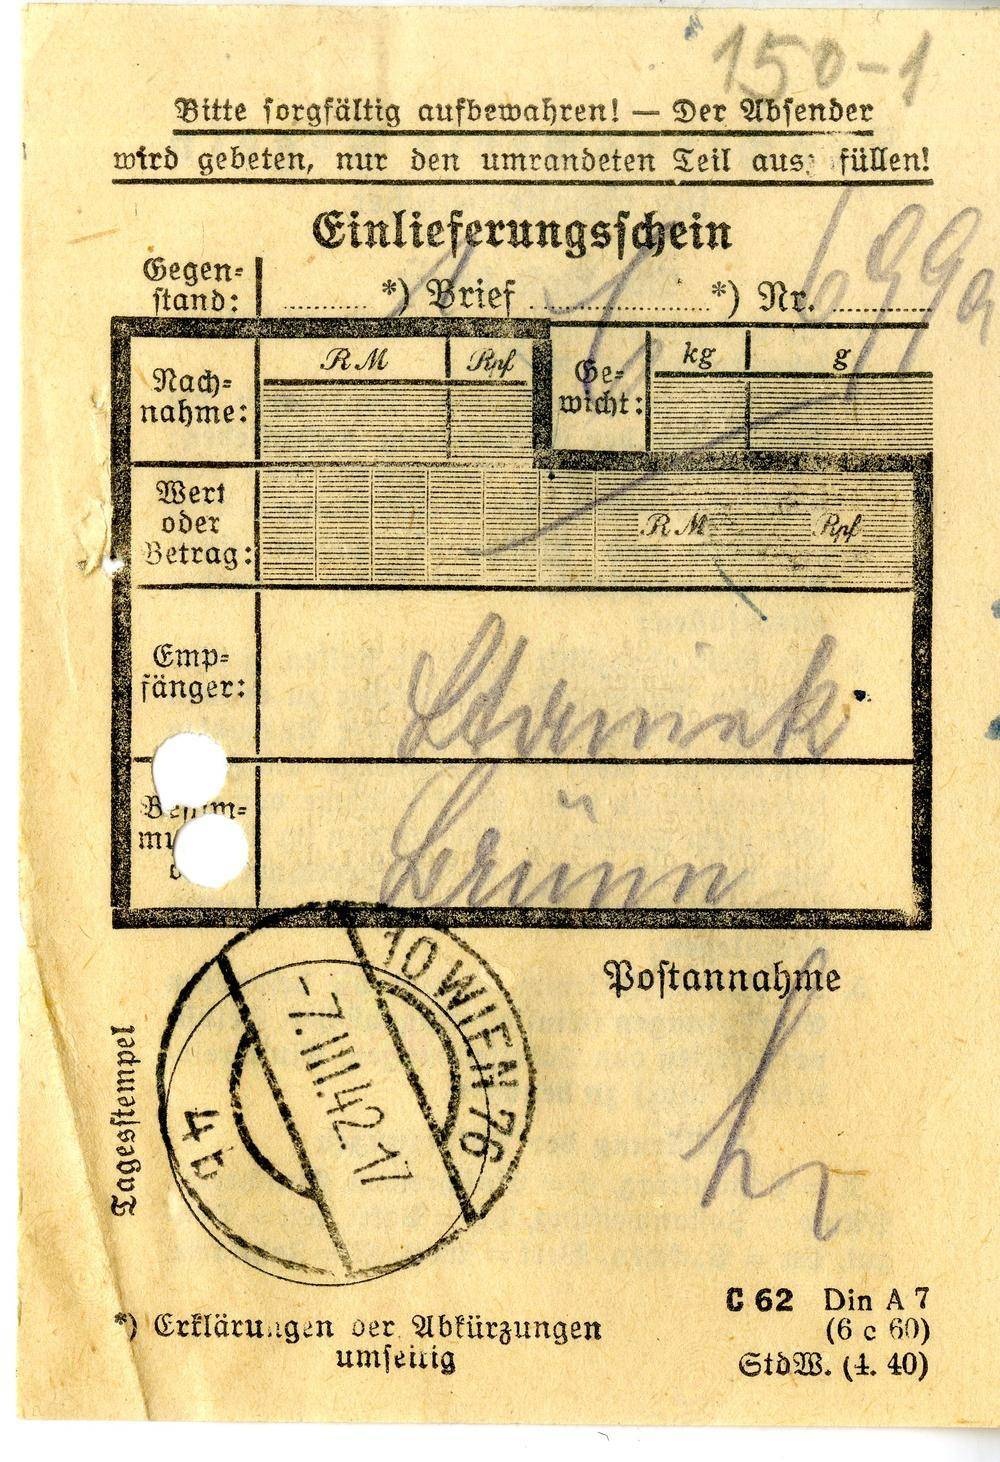 150-1
Bitte sorgfältig aufbewahren! — Der Absender
wird gebeten, nur den umrandeten Teil aus füllen!
Einlieferungsschein
Gegen=
stand:
*) Brief *) Nr.
Nach=
nahme:
RM Rpf
Ge=
wicht:
kg g
Wert
oder
Betrag:
RM Rpf
Emp=
fänger:
Brünn
Postannahme
Tagesstempel
10 WIEN 76
-7.III.42.17
*) Erklärungen der Abkürzungen
umseitig
C 62 Din A 7
(6 c 60)
StdW. (4. 40)